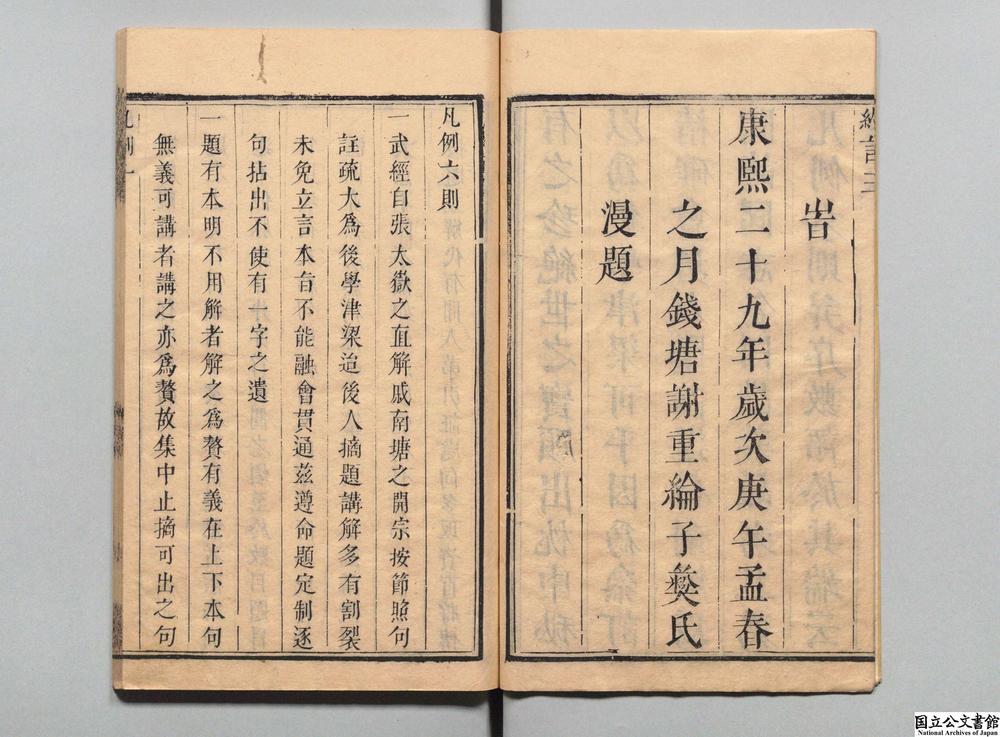 旹
康熙二十九年歲次庚午孟春
之月錢塘謝重綸子奱氏
漫題
凡例六則
一武經自張太嶽之直解戚南塘之開宗按節照句
註疏大爲後學津梁迨後人摘題講解多有割裂
未免立言本旨不能融會貫通茲遵命題定制逐
句拈出不使有一字之遺
一題有本明不用解者解之爲贅有義在上下本句
無義可講者講之亦爲贅故集中止摘可出之句
凡例一
国立公文書館
National Archives of Japan